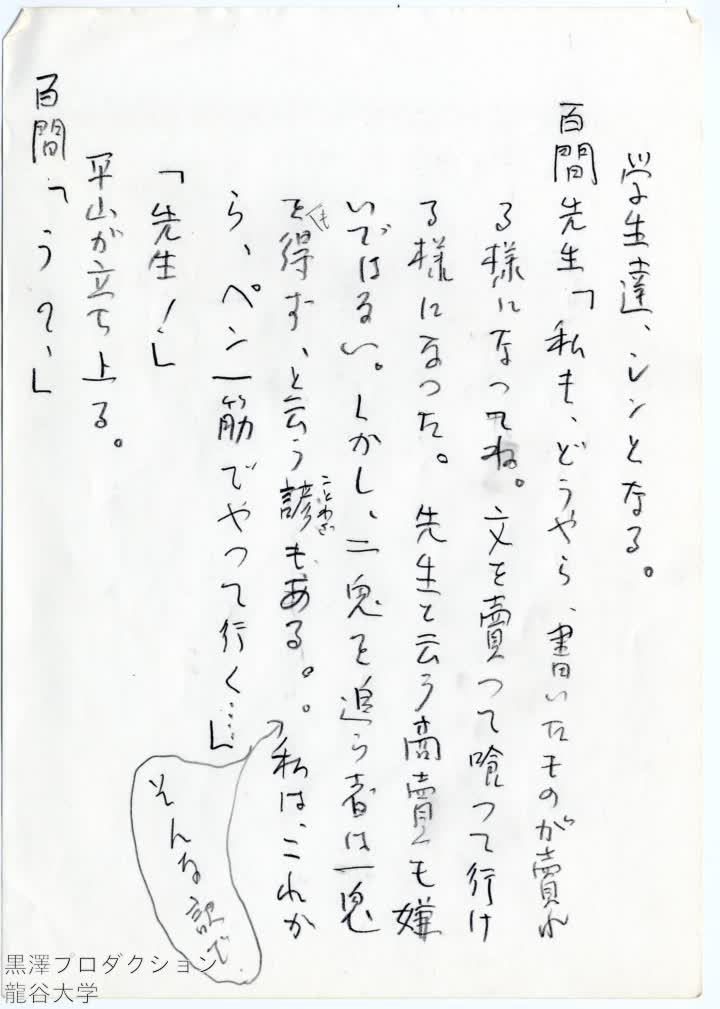 学生達、シンとなる。
百間先生「私も、どうやら、書いたものが賣れ
る様になってね。文を賣つて喰つて行け
る様になつた。先生と云う商賣も嫌
いではない。しかし、二兎を追う者は一兎
をも得ず、と云う諺もある。そんな訳で。私は、これか
ことわざ
ら、ペン一筋でやつて行く……」
「先生！」
平山が立ち上る。
百間「うて、」
黒澤プロダクション
龍谷大学